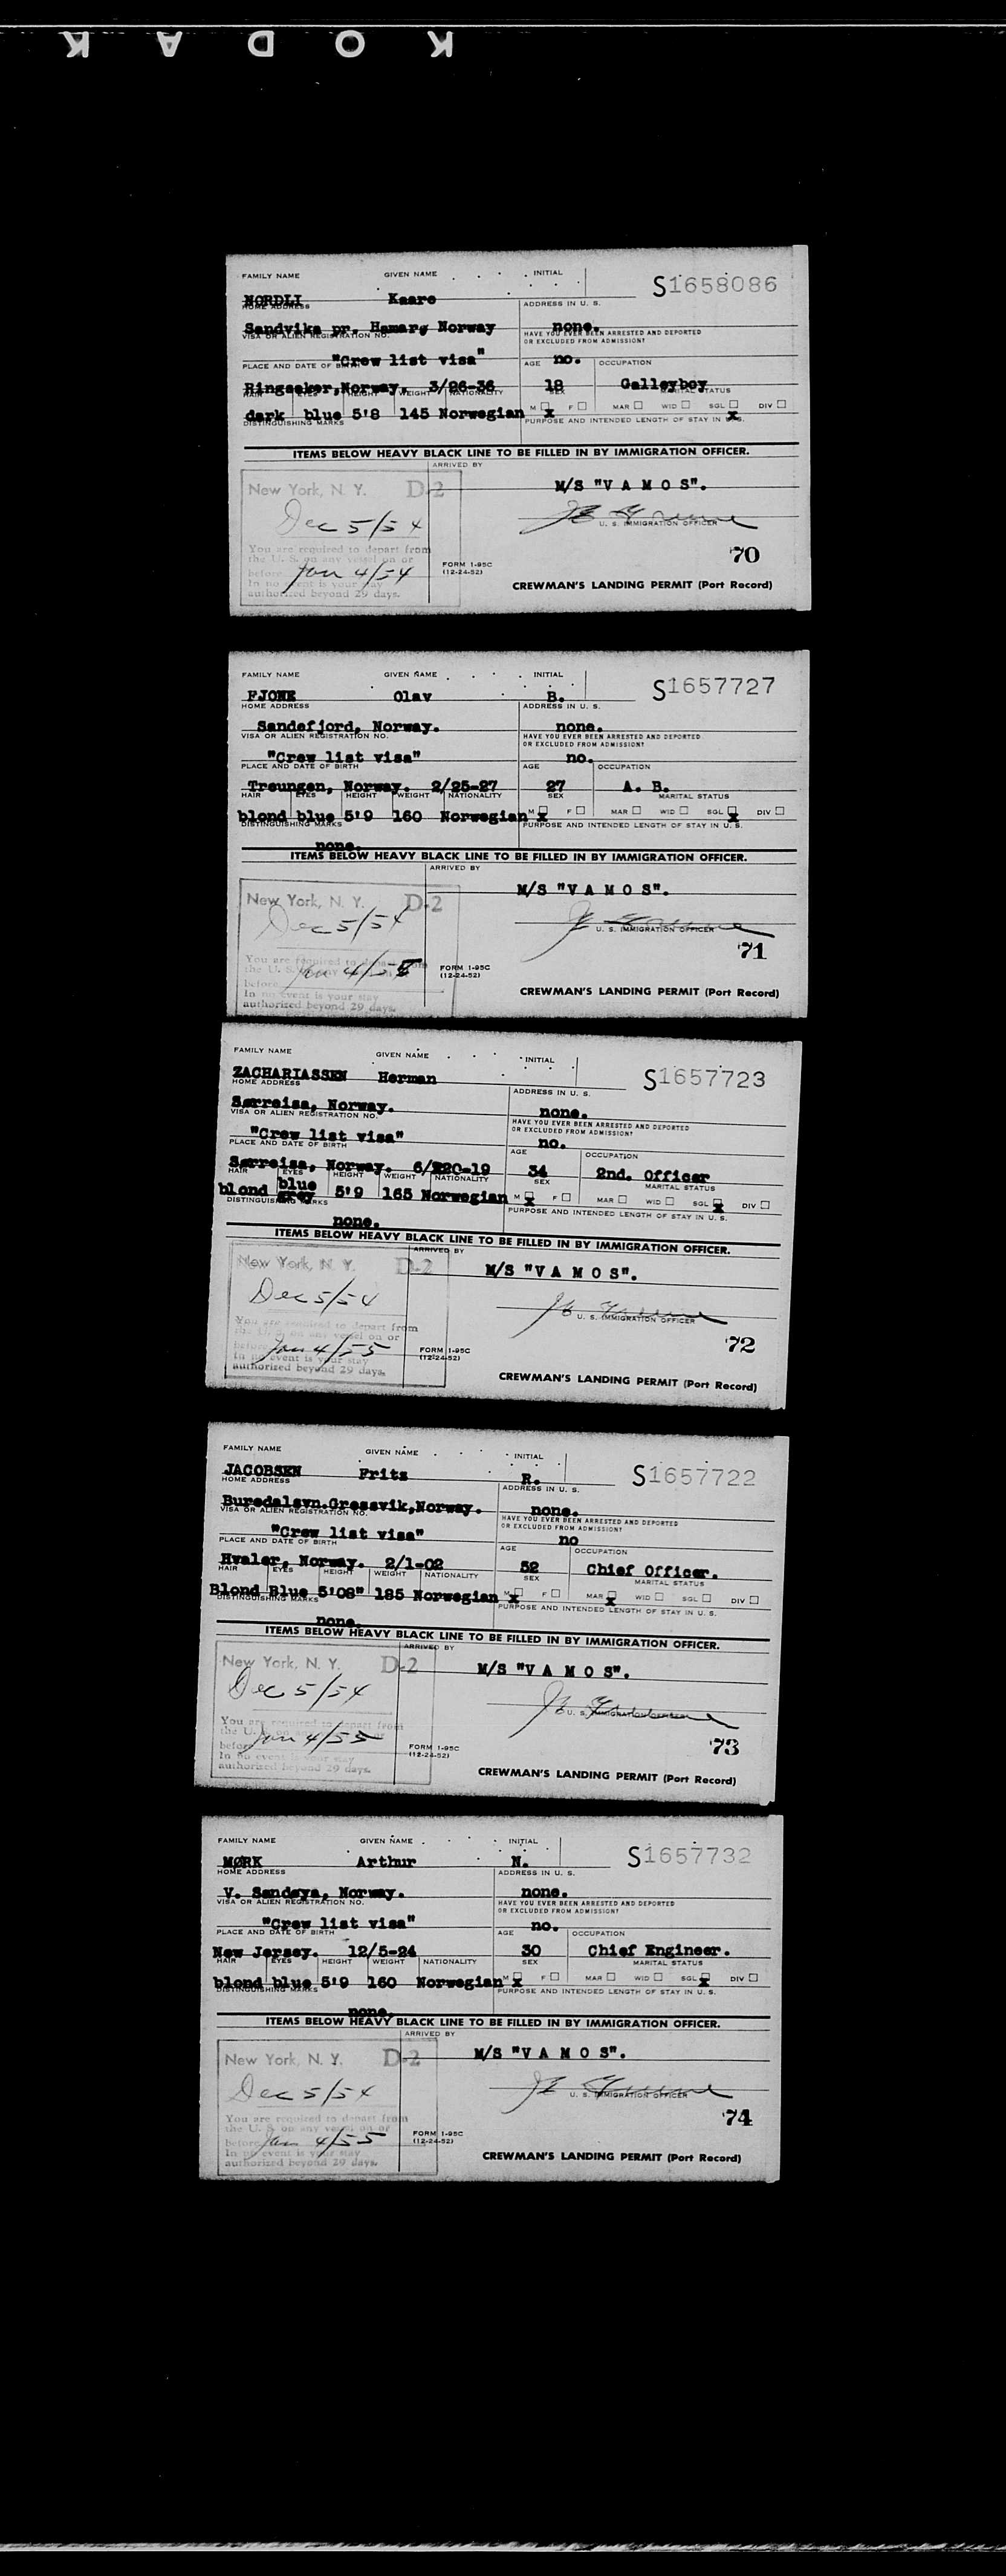 KODAK
FAMILY NAME GIVEN NAME INITIAL
S1658086
NORDLI Kaare
HOME ADDRESS ADDRESS IN U. S.
Sandvika pr. Hamarg Norway none.
VISA OR ALIEN REGISTRATION NO. HAVE YOU EVER BEEN ARRESTED AND DEPORTED
OR EXCLUDED FROM ADMISSION?
"Crew list visa" no.
PLACE AND DATE OF BIRTH AGE OCCUPATION
Ringsaker,Norway. 3/26-36 18 Galleyboy
HAIR EYES HEIGHT WEIGHT NATIONALITY SEX MARITAL STATUS
dark blue 5'8 145 Norwegian M x F MAR WID SGL x DIV
DISTINGUISHING MARKS PURPOSE AND INTENDED LENGTH OF STAY IN U. S.
ITEMS BELOW HEAVY BLACK LINE TO BE FILLED IN BY IMMIGRATION OFFICER.
ARRIVED BY
New York, N. Y. D-2 M/S "V A M O S".
Dec 5/54
U. S. IMMIGRATION OFFICER
You are required to depart from
the U. S. on any vessel on or
before Jan 4/54
In no event is your stay
authorized beyond 29 days.
70
FORM 1-95C
(12-24-52)
CREWMAN'S LANDING PERMIT (Port Record)
FAMILY NAME GIVEN NAME INITIAL
S1657727
FJONE Olav B.
HOME ADDRESS ADDRESS IN U. S.
Sandefjord, Norway. none.
VISA OR ALIEN REGISTRATION NO. HAVE YOU EVER BEEN ARRESTED AND DEPORTED
OR EXCLUDED FROM ADMISSION?
"Crew list visa" no.
PLACE AND DATE OF BIRTH AGE OCCUPATION
Treungen, Norway. 2/25-27 27 A. B.
HAIR EYES HEIGHT WEIGHT NATIONALITY SEX MARITAL STATUS
blond blue 5'9 160 Norwegian M x F MAR WID SGL x DIV
DISTINGUISHING MARKS PURPOSE AND INTENDED LENGTH OF STAY IN U. S.
none.
ITEMS BELOW HEAVY BLACK LINE TO BE FILLED IN BY IMMIGRATION OFFICER.
ARRIVED BY
New York, N. Y. D-2 M/S "V A M O S".
Dec 5/54
U. S. IMMIGRATION OFFICER
71
You are required to depart from
the U. S. on any vessel on or
before Jan 4/55
In no event is your stay
authorized beyond 29 days.
FORM 1-95C
(12-24-52)
CREWMAN'S LANDING PERMIT (Port Record)
FAMILY NAME GIVEN NAME INITIAL
S1657723
ZACHARIASSEN Herman
HOME ADDRESS ADDRESS IN U. S.
Sørreisa, Norway. none.
VISA OR ALIEN REGISTRATION NO. HAVE YOU EVER BEEN ARRESTED AND DEPORTED
OR EXCLUDED FROM ADMISSION?
"Crew list visa" no.
PLACE AND DATE OF BIRTH AGE OCCUPATION
Sørreisa, Norway. 6/220-19 34 2nd. Officer
HAIR EYES HEIGHT WEIGHT NATIONALITY SEX MARITAL STATUS
blond blue grey 5'9 165 Norwegian M x F MAR WID SGL x DIV
DISTINGUISHING MARKS PURPOSE AND INTENDED LENGTH OF STAY IN U. S.
none.
ITEMS BELOW HEAVY BLACK LINE TO BE FILLED IN BY IMMIGRATION OFFICER.
ARRIVED BY
New York, N. Y. D-2 M/S "V A M O S".
Dec 5/54
U. S. IMMIGRATION OFFICER
You are required to depart from
the U. S. on any vessel on or
before Jan 4/55
In no event is your stay
authorized beyond 29 days.
72
FORM 1-95C
(12-24-52)
CREWMAN'S LANDING PERMIT (Port Record)
FAMILY NAME GIVEN NAME INITIAL
S1657722
JACOBSEN Frits R.
HOME ADDRESS ADDRESS IN U. S.
Buredalsvn.Gressvik,Norway. none.
VISA OR ALIEN REGISTRATION NO. HAVE YOU EVER BEEN ARRESTED AND DEPORTED
OR EXCLUDED FROM ADMISSION?
"Crew list visa" no
PLACE AND DATE OF BIRTH AGE OCCUPATION
Hvaler, Norway. 2/1-02 52 Chief Officer.
HAIR EYES HEIGHT WEIGHT NATIONALITY SEX MARITAL STATUS
Blond Blue 5'08" 185 Norwegian M x F MAR x WID SGL DIV
DISTINGUISHING MARKS PURPOSE AND INTENDED LENGTH OF STAY IN U. S.
none.
ITEMS BELOW HEAVY BLACK LINE TO BE FILLED IN BY IMMIGRATION OFFICER.
ARRIVED BY
New York, N. Y. D-2 M/S "V A M O S".
Dec 5/54
U. S. IMMIGRATION
You are required to depart from
the U. S. on any vessel on or
before Jan 4/55
In no event is your stay
authorized beyond 29 days.
73
FORM 1-95C
(12-24-52)
CREWMAN'S LANDING PERMIT (Port Record)
FAMILY NAME GIVEN NAME INITIAL
S1657732
MØRK Arthur N.
HOME ADDRESS ADDRESS IN U. S.
V. Sandøya, Norway. none.
VISA OR ALIEN REGISTRATION NO. HAVE YOU EVER BEEN ARRESTED AND DEPORTED
OR EXCLUDED FROM ADMISSION?
"Crew list visa" no.
PLACE AND DATE OF BIRTH AGE OCCUPATION
New Jersey. 12/5-24 30 Chief Engineer.
HAIR EYES HEIGHT WEIGHT NATIONALITY SEX MARITAL STATUS
blond blue 5'9 160 Norwegian M x F MAR WID SGL x DIV
DISTINGUISHING MARKS PURPOSE AND INTENDED LENGTH OF STAY IN U. S.
none.
ITEMS BELOW HEAVY BLACK LINE TO BE FILLED IN BY IMMIGRATION OFFICER.
ARRIVED BY
New York, N. Y. D-2 M/S "V A M O S".
Dec 5/54
U. S. IMMIGRATION OFFICER
You are required to depart from
the U. S. on any vessel on or
before Jan 4/55
In no event is your stay
authorized beyond 29 days.
74
FORM 1-95C
(12-24-52)
CREWMAN'S LANDING PERMIT (Port Record)